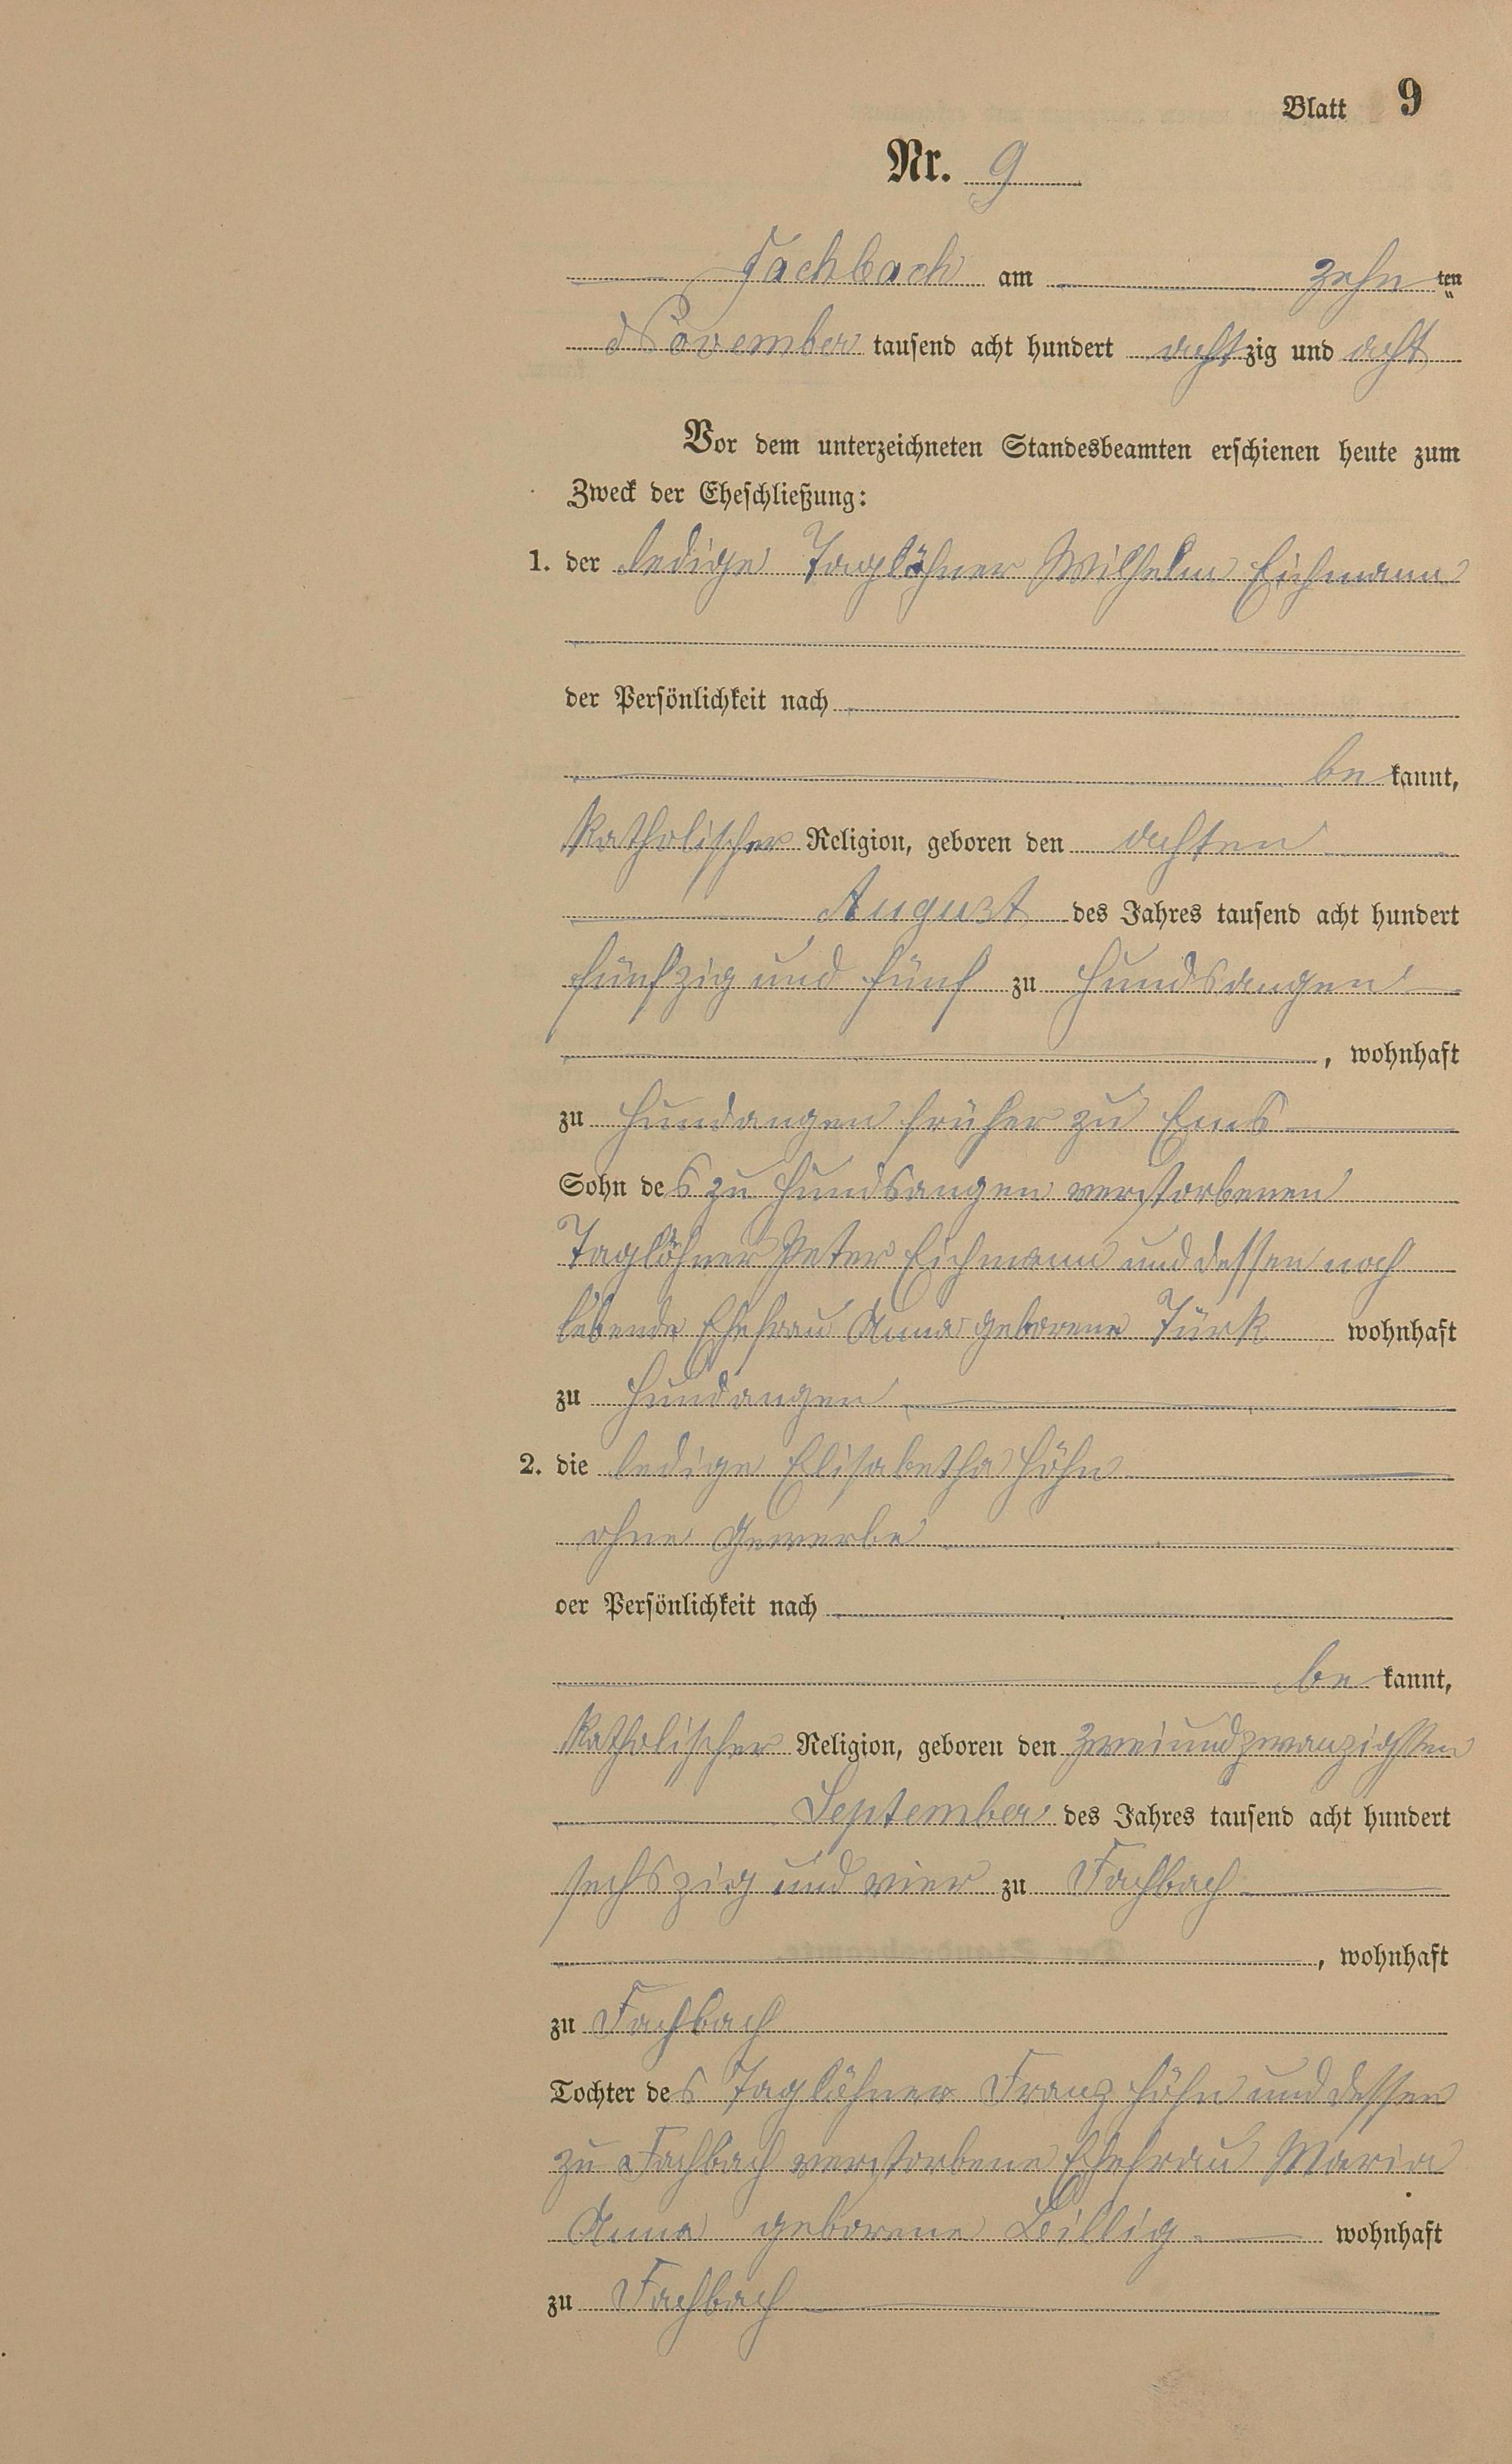 Blatt 9
Nr. 9
Fachbach am zehn ten
November tausend acht hundert achtzig und acht
Vor dem unterzeichneten Standesbeamten erschienen heute zum
Zweck der Eheschließung:
1. der ledige Taglöhner Wilhelm Eichmann
der Persönlichkeit nach
be kannt,
katholischer Religion, geboren den achten
August des Jahres tausend acht hundert
fünfzig und fünf zu Hundsangen
, wohnhaft
zu Hundangen früher zu Ems
Sohn des zu Hundsangen verstorbenen
Taglöhner Peter Eichmann und dessen noch
lebende Ehefrau Anna geborene Türk wohnhaft
zu Hundangen
2. die ledige Elisabetha Höhn
ohne Gewerbe
der Persönlichkeit nach
be kannt,
katholischer Religion, geboren den zweiundzwanzigsten
September des Jahres tausend acht hundert
sechszig und vier zu Fachbach
, wohnhaft
zu Fachbach
Tochter des Taglöhner Franz Höhn und dessen
zu Fachbach verstorbene Ehefrau Maria
Anna geborene Billig wohnhaft
zu Fachbach